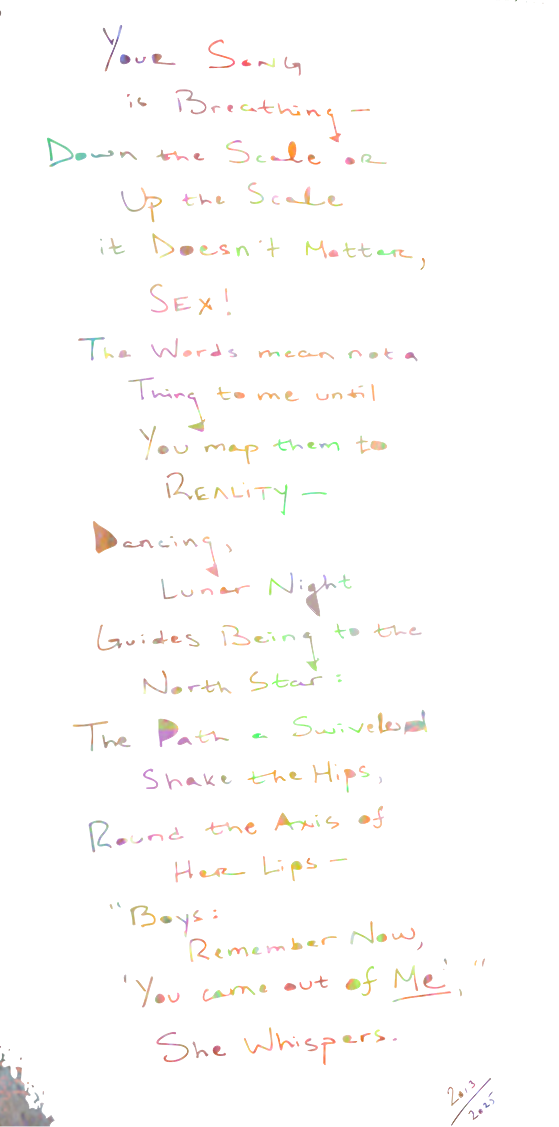 Your Song
is Breathing—
Down the Scale or
Up the Scale
it Doesn't Matter,
SEX!
The Words mean not a
Thing to me until
You map them to
REALITY—
Dancing,
Lunar Night
Guides Being to the
North Star:
The Path a Swiveled
Shake the Hips,
Round the Axis of
Her Lips—
"Boys:
Remember Now,
'You came out of Me',"
She Whispers.
2013/2025